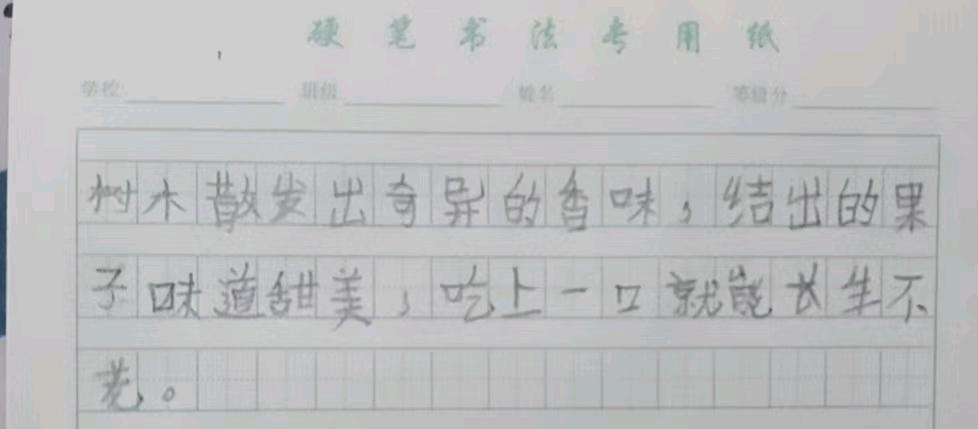 硬笔书法专用纸
学校 班级 姓名 等级分
树木散发出奇异的香味，结出的果
子味道甜美，吃上一口就能长生不
老。